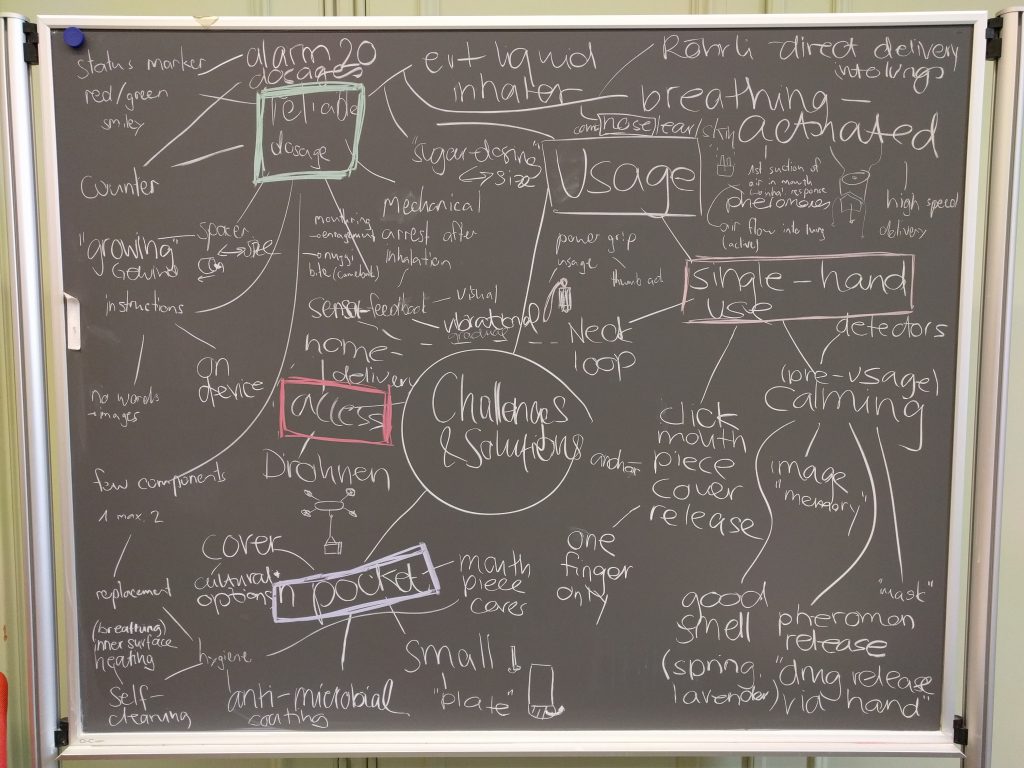 status marker
red/green
smiley
counter
alarm 20
dosages
reliable
dosage
liquid
inhaler
Röhrli direct delivery
into lungs
breathing -
activated
nose
"sugar-dosing"
size
Usage
1st suction of
pheromones
air flow into lung
(active)
high speed
delivery
"growing"
spacer
size
instructions
on
device
no words
images
few components
1 max. 2
replacement
(breathing)
inner surface
heating
self-
cleaning
hygiene
Mechanical
arrest after
inhalation
feedback
visual
vibrational
power grip
usage
single-hand
use
Neck
loop
home-
delivery
access
Drohnen
Challenges
& Solutions
detectors
(pre-usage)
Calming
click
mouth
piece
cover
release
one
finger
only
image
"memory"
good
smell
(spring,
lavender)
pheromon
release
"mask"
"drug release
via hand
cover
cultural
options
in pocket
mouth
piece
small
"plate"
anti-microbial
coating